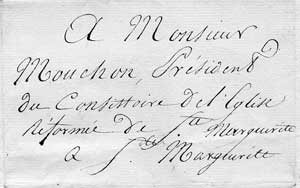 A Monsieur
Mouchon, Président
du Consistoire de l'Eglise
réformée de Ste Marguerite
a Ste Marguerite